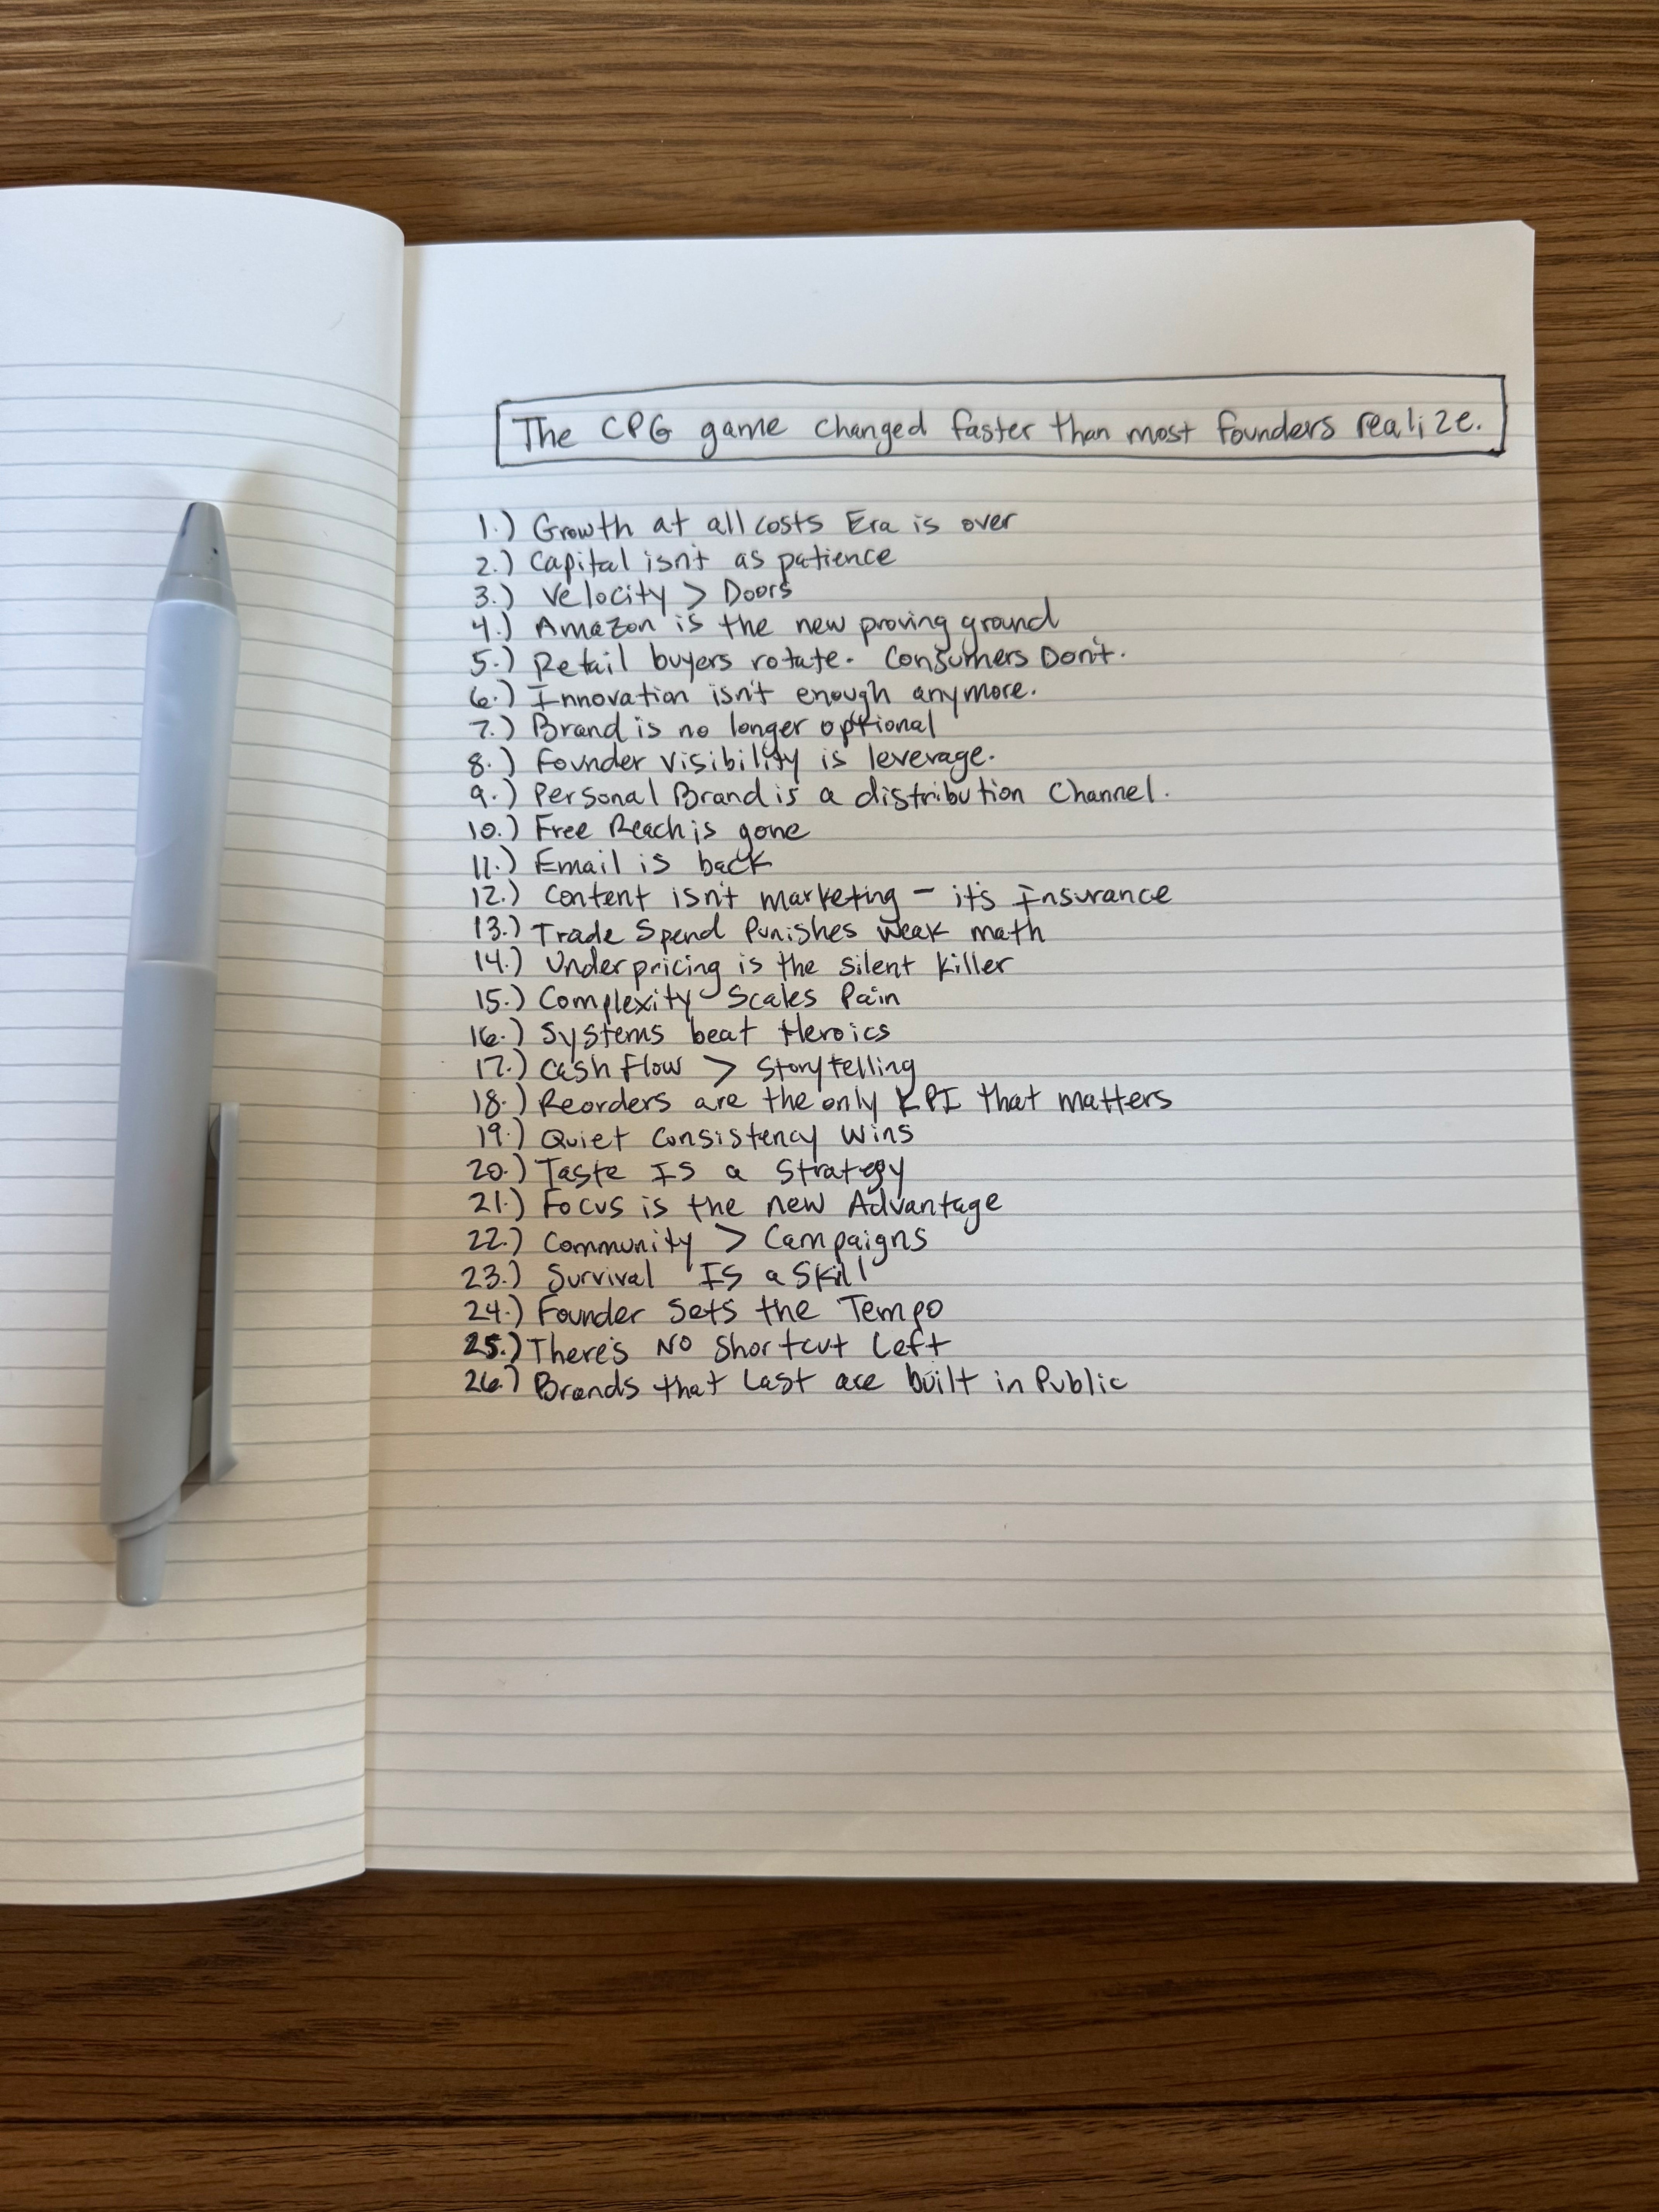 The CPG game changed faster than most founders realize.
1.) Growth at all costs Era is over
2.) Capital isn't as patience
3.) Velocity > Doors
4.) Amazon is the new proving ground
5.) Retail buyers rotate. Consumers Don't.
6.) Innovation isn't enough anymore.
7.) Brand is no longer optional
8.) Founder visibility is leverage.
9.) Personal Brand is a distribution Channel.
10.) Free Reach is gone
11.) Email is back
12.) Content isn't marketing - it's Insurance
13.) Trade Spend Punishes weak math
14.) Underpricing is the silent killer
15.) Complexity Scales Pain
16.) Systems beat Heroics
17.) Cash Flow > Storytelling
18.) Reorders are the only KPI that matters
19.) Quiet Consistency Wins
20.) Taste Is a Strategy
21.) Focus is the new Advantage
22.) Community > Campaigns
23.) Survival Is a Skill
24.) Founder Sets the Tempo
25.) There's No Shortcut Left
26.) Brands that Last are built in Public